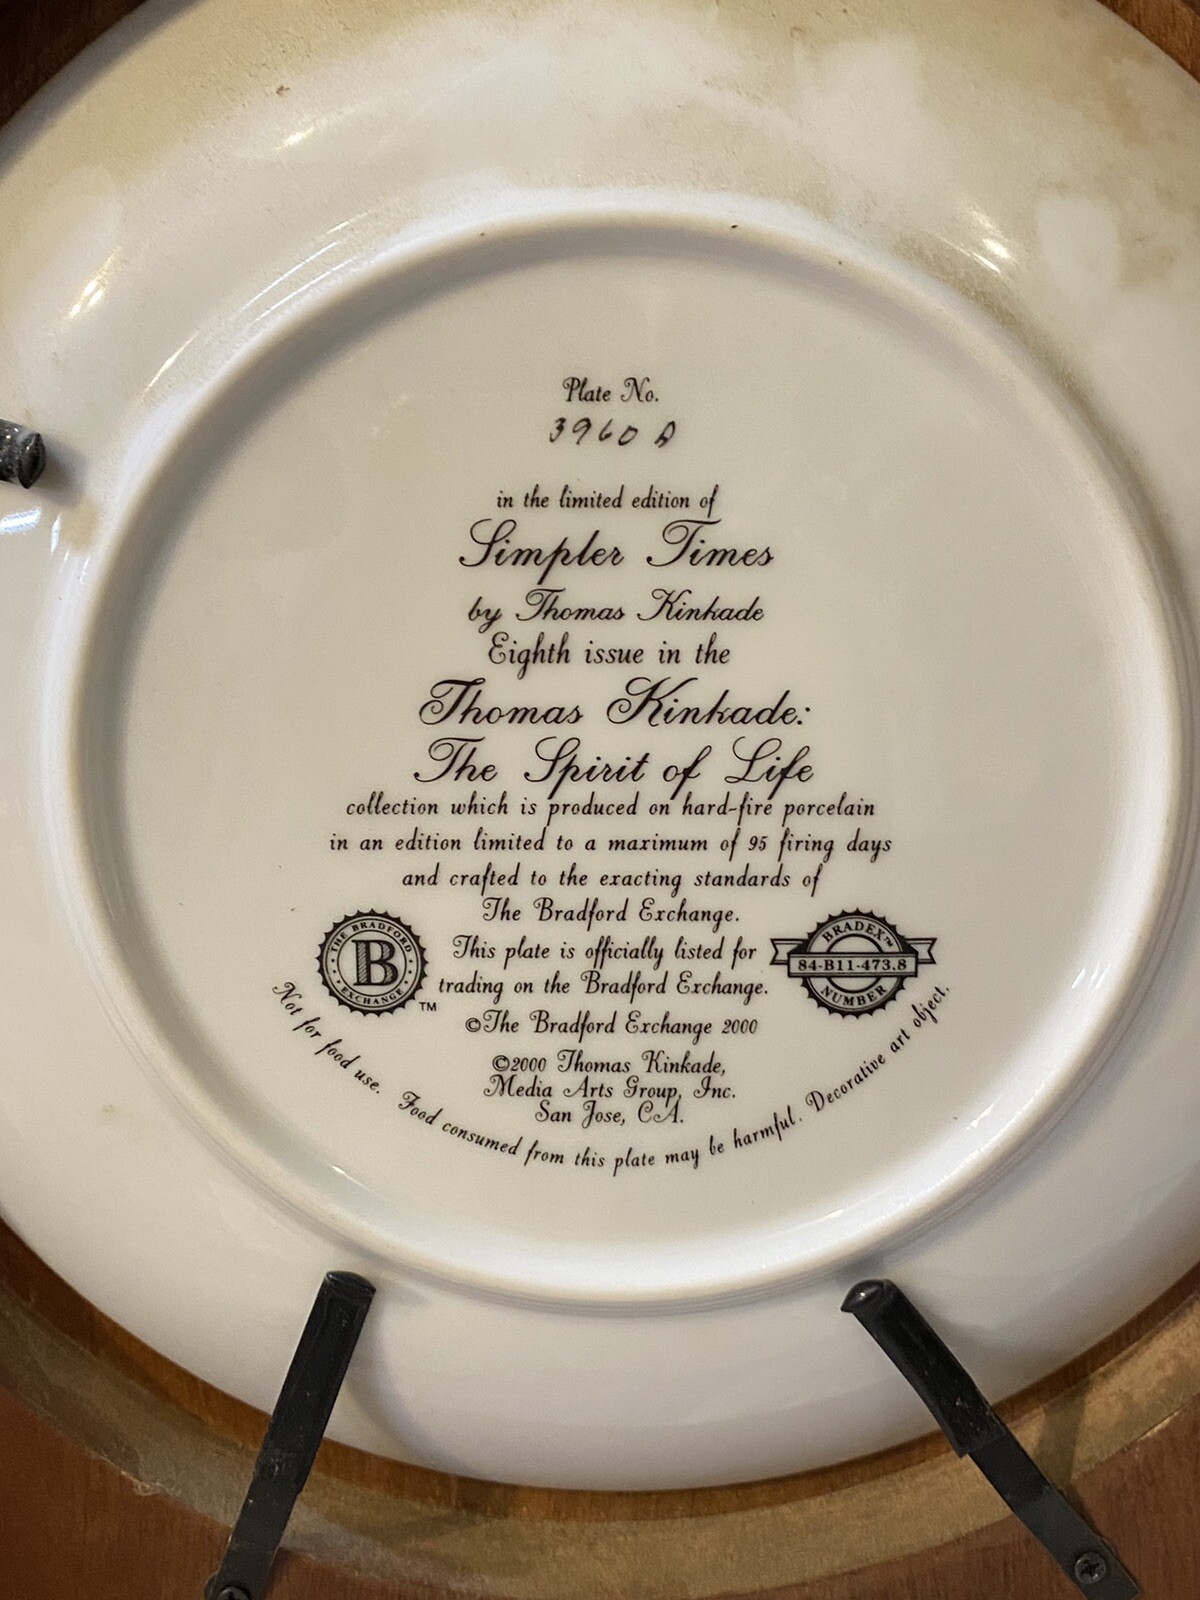 Plate No.
3960 A
in the limited edition of
Simpler Times
by Thomas Kinkade
Eighth issue in the
Thomas Kinkade:
The Spirit of Life
collection which is produced on hard-fire porcelain
in an edition limited to a maximum of 95 firing days
and crafted to the exacting standards of
The Bradford Exchange.
This plate is officially listed for
trading on the Bradford Exchange.
©The Bradford Exchange 2000
©2000 Thomas Kinkade,
Media Arts Group, Inc.
San Jose, CA.
THE BRADFORD
B
EXCHANGE
TM
BRADEX™
84-B11-473.8
NUMBER
Not for food use. Food consumed from this plate may be harmful. Decorative art object.